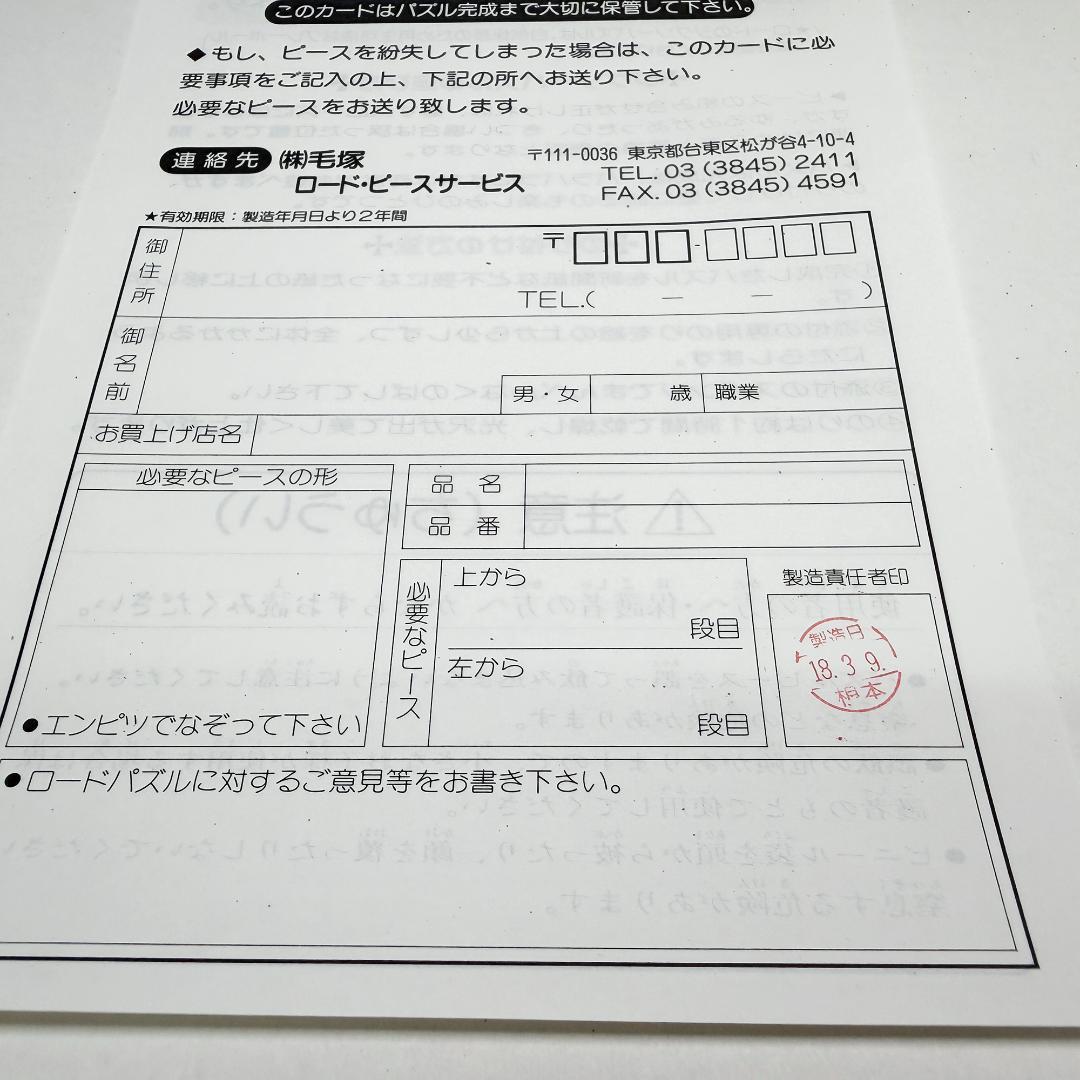 このカードはパズル完成まで大切に保管して下さい。
◆もし、ピースを紛失してしまった場合は、このカードに必
要事項をご記入の上、下記の所へお送り下さい。
必要なピースをお送り致します。
連絡先 ㈱毛塚
ロード・ピースサービス
〒111-0036 東京都台東区松が谷4-10-4
TEL. 03 (3845) 2411
FAX. 03 (3845) 4591
★有効期限：製造年月日より2年間
御住所
〒 -
TEL.( － － )
御名前
男・女 歳 職業
お買上げ店名
必要なピースの形
●エンピツでなぞって下さい
品 名
品 番
必要なピース
上から
段目
左から
段目
製造責任者印
製造日
18.3.9.
●ロードパズルに対するご意見等をお書き下さい。